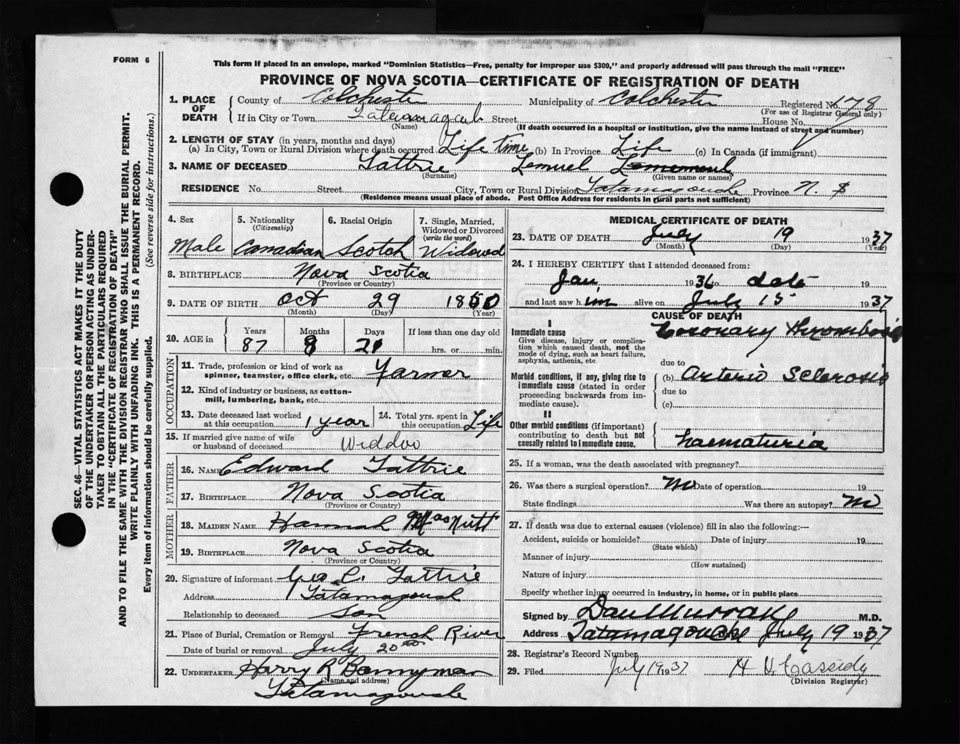 FORM 6
This form if placed in an envelope, marked "Dominion Statistics—Free, penalty for improper use $300," and properly addressed will pass through the mail "FREE"
PROVINCE OF NOVA SCOTIA—CERTIFICATE OF REGISTRATION OF DEATH
1. PLACE OF DEATH County of Colchester Municipality of Colchester Registered No. 178
(For use of Registrar General only)
If in City or Town Street House No.
(Name) (If death occurred in a hospital or institution, give the name instead of street and number)
2. LENGTH OF STAY (in years, months and days)
(a) In City, Town or Rural Division where death occurred Life time (b) In Province Life (c) In Canada (if immigrant)
3. NAME OF DECEASED Tattrie Lemuel
(Surname) (Given name or names)
RESIDENCE No. Street City, Town or Rural Division Tatamagouche Province N. S
(Residence means usual place of abode. Post Office Address for residents in rural parts not sufficient)
4. Sex 5. Nationality (Citizenship) 6. Racial Origin 7. Single, Married, Widowed or Divorced (write the word)
Male Canadian Scotch Widowed
8. BIRTHPLACE Nova Scotia
(Province or Country)
9. DATE OF BIRTH Oct 29 1850
(Month) (Day) (Year)
10. AGE in Years Months Days If less than one day old
87 8 21 hrs. or min.
OCCUPATION
11. Trade, profession or kind of work as spinner, teamster, office clerk, etc. Farmer
12. Kind of industry or business, as cotton-mill, lumbering, bank, etc.
13. Date deceased last worked at this occupation 1 year 14. Total yrs. spent in this occupation Life
15. If married give name of wife or husband of deceased Widdoo
FATHER
16. NAME Edward Tattrie
17. BIRTHPLACE Nova Scotia
(Province or Country)
MOTHER
18. MAIDEN NAME Hannah MacNutt
19. BIRTHPLACE Nova Scotia
(Province or Country)
20. Signature of informant Geo C. Tattrie
Address Tatamagouch
Relationship to deceased Son
21. Place of Burial, Cremation or Removal French River
Date of burial or removal July 20th
22. UNDERTAKER Harry R Bonnyman
(Name and address)
Tatamagouche
MEDICAL CERTIFICATE OF DEATH
23. DATE OF DEATH July 19 1937
(Month) (Day) (Year)
24. I HEREBY CERTIFY that I attended deceased from:
Jan, 1936 to date 19
and last saw him alive on July 15 1937
CAUSE OF DEATH
I
Immediate cause Coronary Thrombosis
Give disease, injury or complication which caused death, not the mode of dying, such as heart failure, asphyxia, asthenia, etc.
due to
Morbid conditions, if any, giving rise to immediate cause (stated in order proceeding backwards from immediate cause). (b) Arterio Sclerosis
due to
(c)
II
Other morbid conditions (if important) contributing to death but not causally related to immediate cause. haematuria
25. If a woman, was the death associated with pregnancy?
26. Was there a surgical operation? no Date of operation 19
State findings Was there an autopsy? no
27. If death was due to external causes (violence) fill in also the following:—
Accident, suicide or homicide? Date of injury 19
(State which)
Manner of injury
(How sustained)
Nature of injury
Specify whether injury occurred in industry, in home, or in public place
Signed by Dan Murray M.D.
Address Tatamagouche July 19 1937
28. Registrar's Record Number
29. Filed July 19 1937 H. D. Cassidy
(Division Registrar)
SEC. 46—VITAL STATISTICS ACT MAKES IT THE DUTY
OF THE UNDERTAKER OR PERSON ACTING AS UNDER-
TAKER TO OBTAIN ALL THE PARTICULARS REQUIRED
IN THE "CERTIFICATE OF REGISTRATION OF DEATH"
AND TO FILE THE SAME WITH THE DIVISION REGISTRAR WHO SHALL ISSUE THE BURIAL PERMIT.
WRITE PLAINLY WITH UNFADING INK. THIS IS A PERMANENT RECORD.
Every item of information should be carefully supplied. (See reverse side for instructions.)